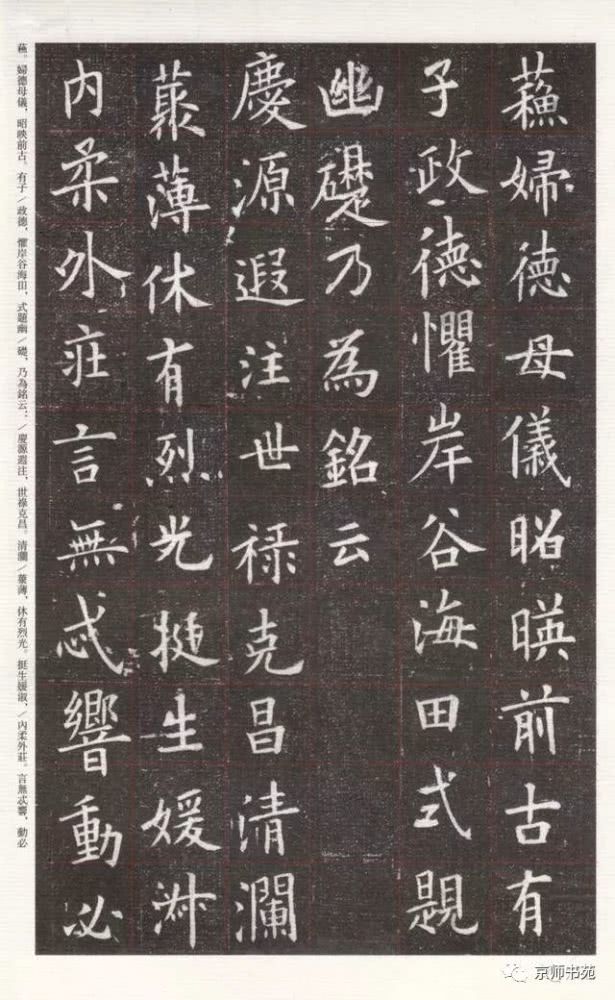 蘓婦德母儀昭暎前古有
子政德懼岸谷海田式題
幽礎乃為銘云
慶源遐注世禄克昌清瀾
蘂薄休有烈光挺生媛淑
内柔外莊言無忒響動必
蘓。婦德母儀，昭暎前古。有子／政德，懼岸谷海田，式題幽／礎，乃為銘云：／慶源遐注，世祿克昌。清瀾／蘂薄，休有烈光。挺生媛淑，／內柔外莊。言無忒響，動必
京师书苑